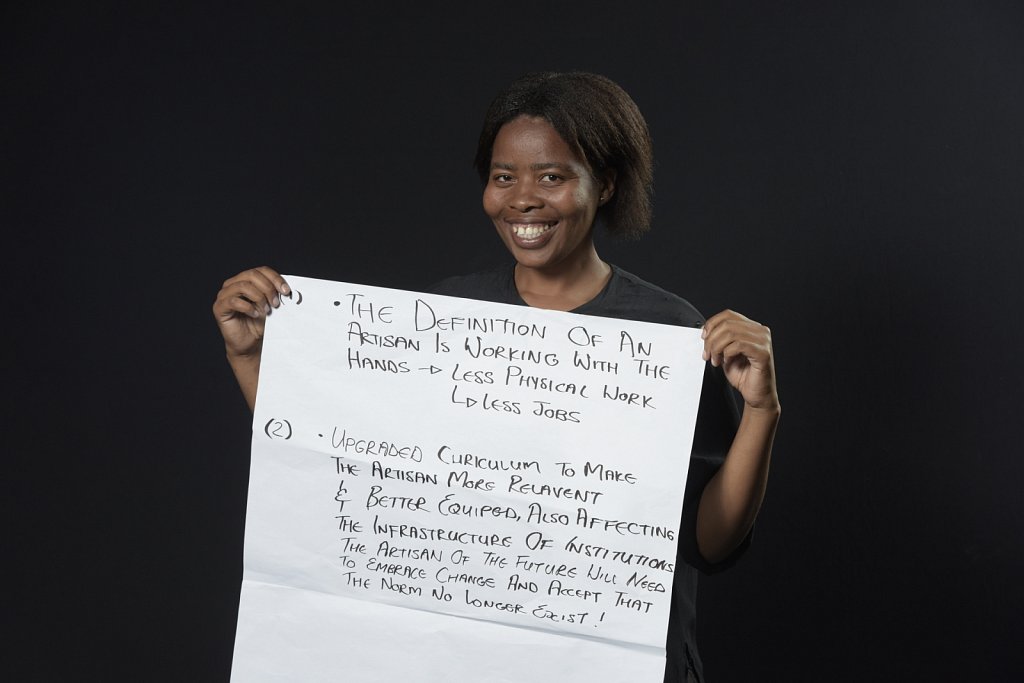 (1) • THE DEFINITION OF AN
ARTISAN IS WORKING WITH THE
HANDS → LESS PHYSICAL WORK
↳ LESS JOBS
(2) • UPGRADED CURICULUM TO MAKE
THE ARTISAN MORE RELAVENT
& BETTER EQUIPED, ALSO AFFECTING
THE INFRASTRUCTURE OF INSTITUTIONS
THE ARTISAN OF THE FUTURE WILL NEED
TO EMBRACE CHANGE AND ACCEPT THAT
THE NORM NO LONGER EXIST!